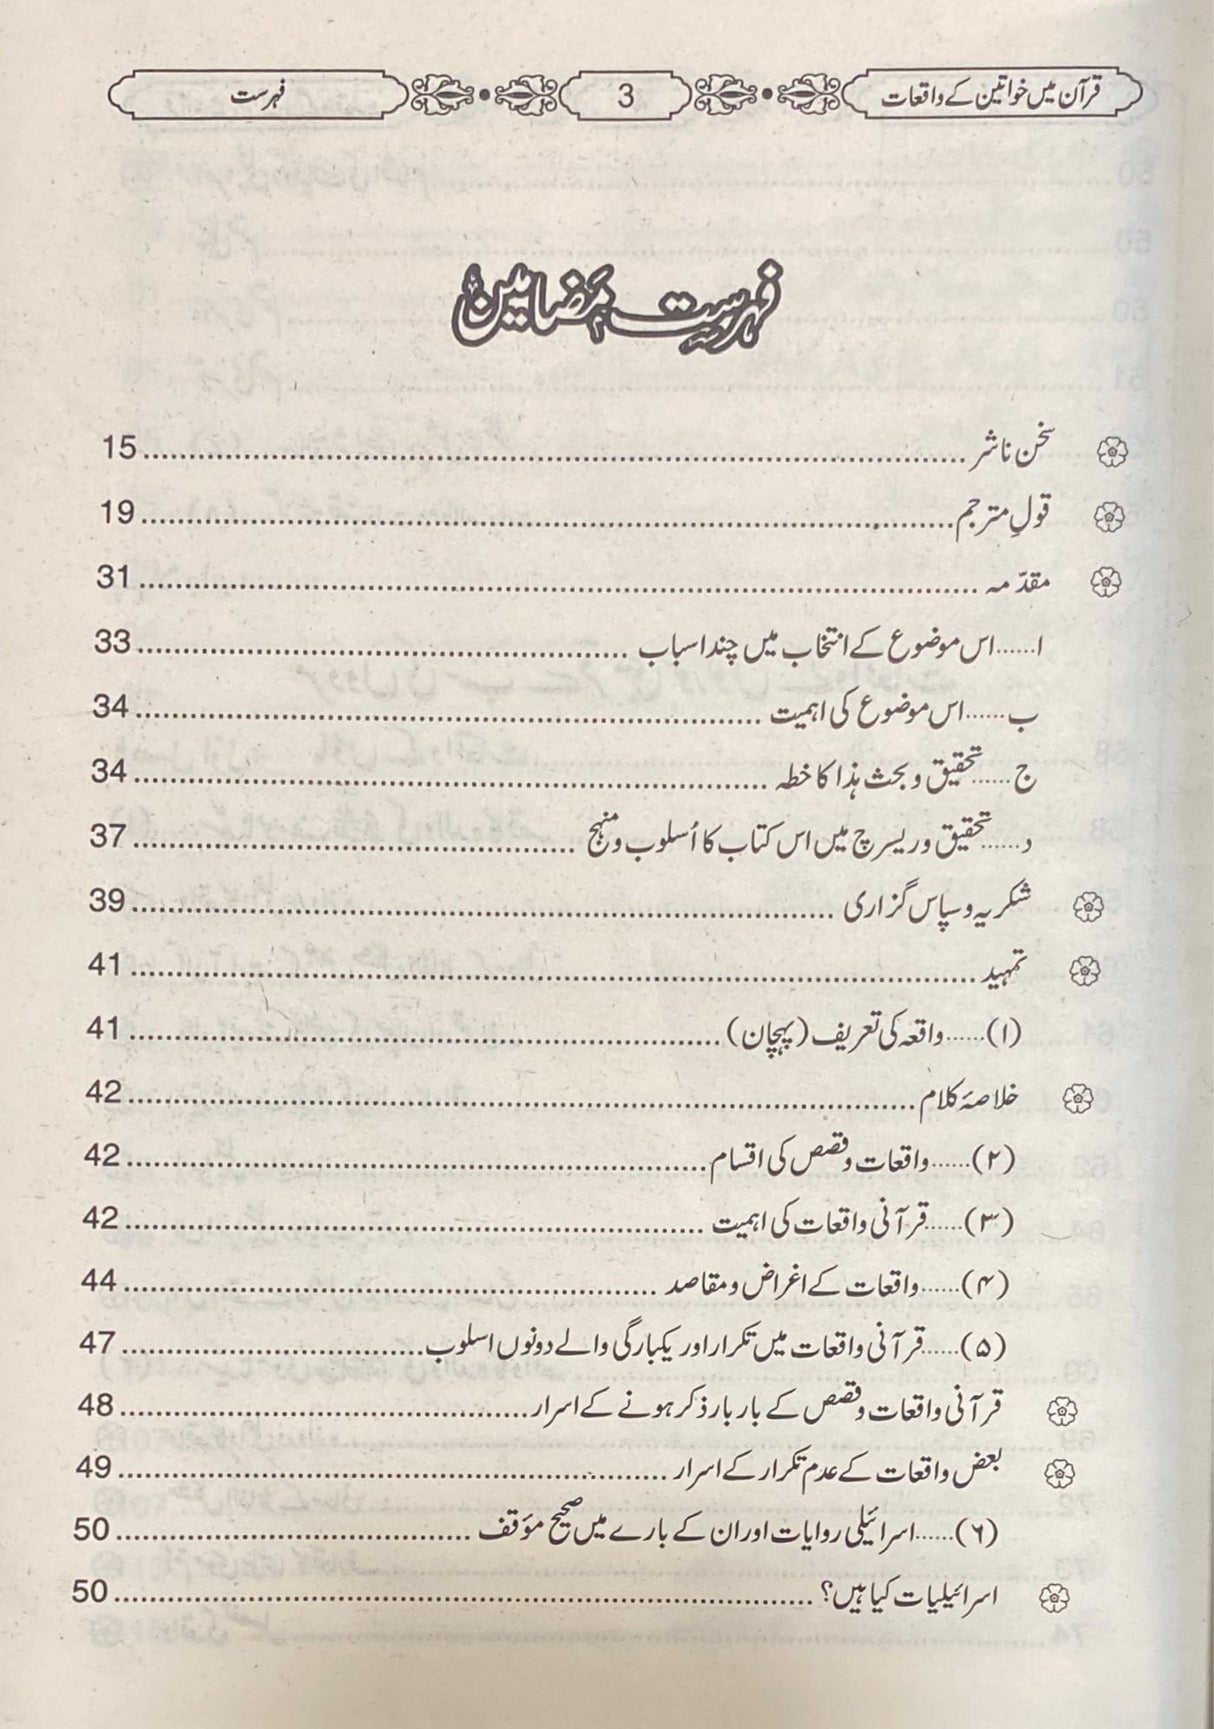 قرآن میں خواتین کے واقعات 3 فہرست
فہرست مضامین
سخن ناشر ........ 15
قولِ مترجم ........ 19
مقدّمہ ........ 31
ا......اس موضوع کے انتخاب میں چند اسباب ........ 33
ب......اس موضوع کی اہمیت ........ 34
ج......تحقیق و بحث ہذا کا خطہ ........ 34
د......تحقیق و ریسرچ میں اس کتاب کا اُسلوب و منہج ........ 37
شکریہ و سپاس گزاری ........ 39
تمہید ........ 41
(۱)......واقعہ کی تعریف (پہچان) ........ 41
خلاصۂ کلام ........ 42
(۲)......واقعات و قصص کی اقسام ........ 42
(۳)......قرآنی واقعات کی اہمیت ........ 42
(۴)......واقعات کے اغراض و مقاصد ........ 44
(۵)......قرآنی واقعات میں تکرار اور یکبارگی والے دونوں اسلوب ........ 47
قرآنی واقعات و قصص کے بار بار ذکر ہونے کے اسرار ........ 48
بعض واقعات کے عدم تکرار کے اسرار ........ 49
(۶)......اسرائیلی روایات اور ان کے بارے میں صحیح مؤقف ........ 50
اسرائیلیات کیا ہیں؟ ........ 50